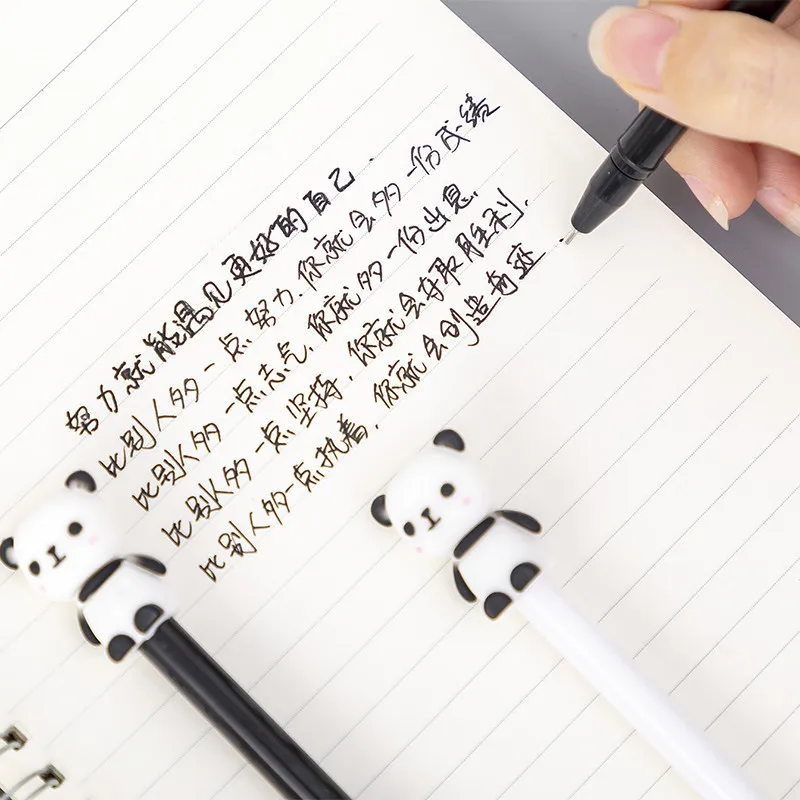 努力就能遇见更好的自己.
比别人多一点努力,你就会多一份成绩
比别人多一点志气,你就多一份出息.
比别人多一点坚持,你就会夺取胜利.
比别人多一点执着,你就会创造奇迹